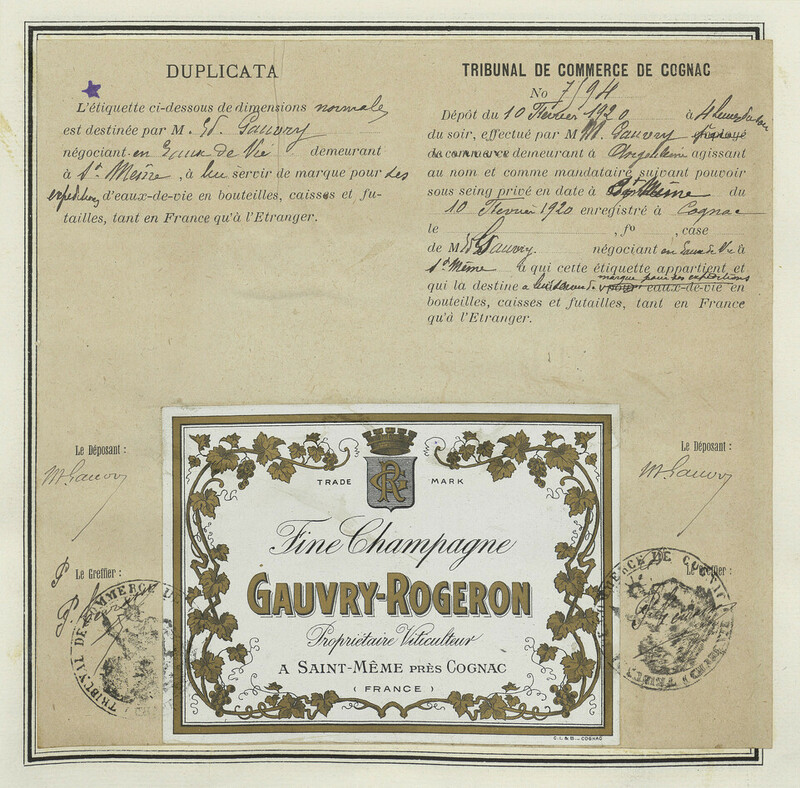 DUPLICATA
L'étiquette ci-dessous de dimensions normales
est destinée par M. Ed. Gauvry
négociant en Eaux de Vie demeurant
à St Même, à lui servir de marque pour ses
expéditions d'eaux-de-vie en bouteilles, caisses et fu-
tailles, tant en France qu'à l'Etranger.
TRIBUNAL DE COMMERCE DE COGNAC
No 7594
Dépôt du 10 Février 1920 à 4 heures
du soir, effectué par M M. Gauvry
demeurant à Angoulême agissant
au nom et comme mandataire suivant pouvoir
sous seing privé en date à St Même du
10 Février 1920 enregistré à Cognac
le , fo , case
de M Ed Gauvry. négociant en Eaux de Vie à
St Même à qui cette étiquette appartient et
qui la destine à lui servir de marque pour ses expéditions eaux-de-vie en
bouteilles, caisses et futailles, tant en France
qu'à l'Etranger.
Le Déposant :
M Gauvry
Le Greffier :
TRIBUNAL DE COMMERCE DE
Le Déposant :
M Gauvry
Le Greffier :
COMMERCE DE COGNAC
TRADE MARK
RG
Fine Champagne
GAUVRY-ROGERON
Propriétaire Viticulteur
A SAINT-MÊME PRÈS COGNAC
( FRANCE )
C.L. & B. - COGNAC